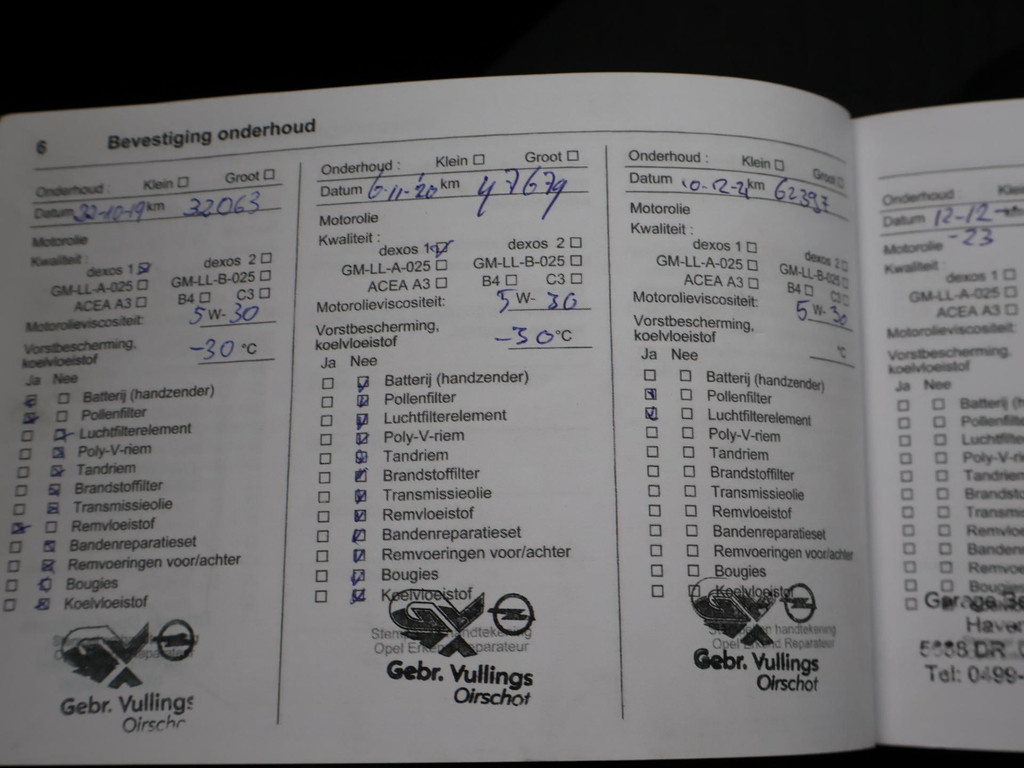 6 Bevestiging onderhoud
Onderhoud : Klein Groot
Datum 22-10-19 km 32063
Motorolie
Kwaliteit :
dexos 1 dexos 2
GM-LL-A-025 GM-LL-B-025
ACEA A3 B4 C3
Motorolieviscositeit: 5 W- 30
Vorstbescherming,
koelvloeistof -30 °C
Ja Nee
Batterij (handzender)
Pollenfilter
Luchtfilterelement
Poly-V-riem
Tandriem
Brandstoffilter
Transmissieolie
Remvloeistof
Bandenreparatieset
Remvoeringen voor/achter
Bougies
Koelvloeistof
Gebr. Vullings
Oirsch
Onderhoud : Klein Groot
Datum 6-11-'20 km 47679
Motorolie
Kwaliteit :
dexos 1 dexos 2
GM-LL-A-025 GM-LL-B-025
ACEA A3 B4 C3
Motorolieviscositeit: 5 W- 30
Vorstbescherming,
koelvloeistof -30 °C
Ja Nee
Batterij (handzender)
Pollenfilter
Luchtfilterelement
Poly-V-riem
Tandriem
Brandstoffilter
Transmissieolie
Remvloeistof
Bandenreparatieset
Remvoeringen voor/achter
Bougies
Koelvloeistof
handtekening
Opel Erkend Reparateur
Gebr. Vullings
Oirschot
Onderhoud : Klein Groot
Datum 10-12-21 km 62397
Motorolie
Kwaliteit :
dexos 1 dexos 2
GM-LL-A-025 GM-LL-B-025
ACEA A3 B4 C3
Motorolieviscositeit: 5 W- 30
Vorstbescherming,
koelvloeistof °C
Ja Nee
Batterij (handzender)
Pollenfilter
Luchtfilterelement
Poly-V-riem
Tandriem
Brandstoffilter
Transmissieolie
Remvloeistof
Bandenreparatieset
Remvoeringen voor/achter
Bougies
Koelvloeistof
handtekening
Opel Erkend Reparateur
Gebr. Vullings
Oirschot
Onderhoud : Klei
Datum 12-12
-23
Motorolie
Kwaliteit :
dexos 1
GM-LL-A-025
ACEA A3
Motorolieviscositeit:
Vorstbescherming,
koelvloeistof
Ja Nee
Batterij (h
Pollenfilte
Luchtfilte
Poly-V-ri
Tandriem
Brandsto
Transmis
Remvloe
Banden
Remvoe
Bougies
Garage
Haven
DR
Tel: 0499-